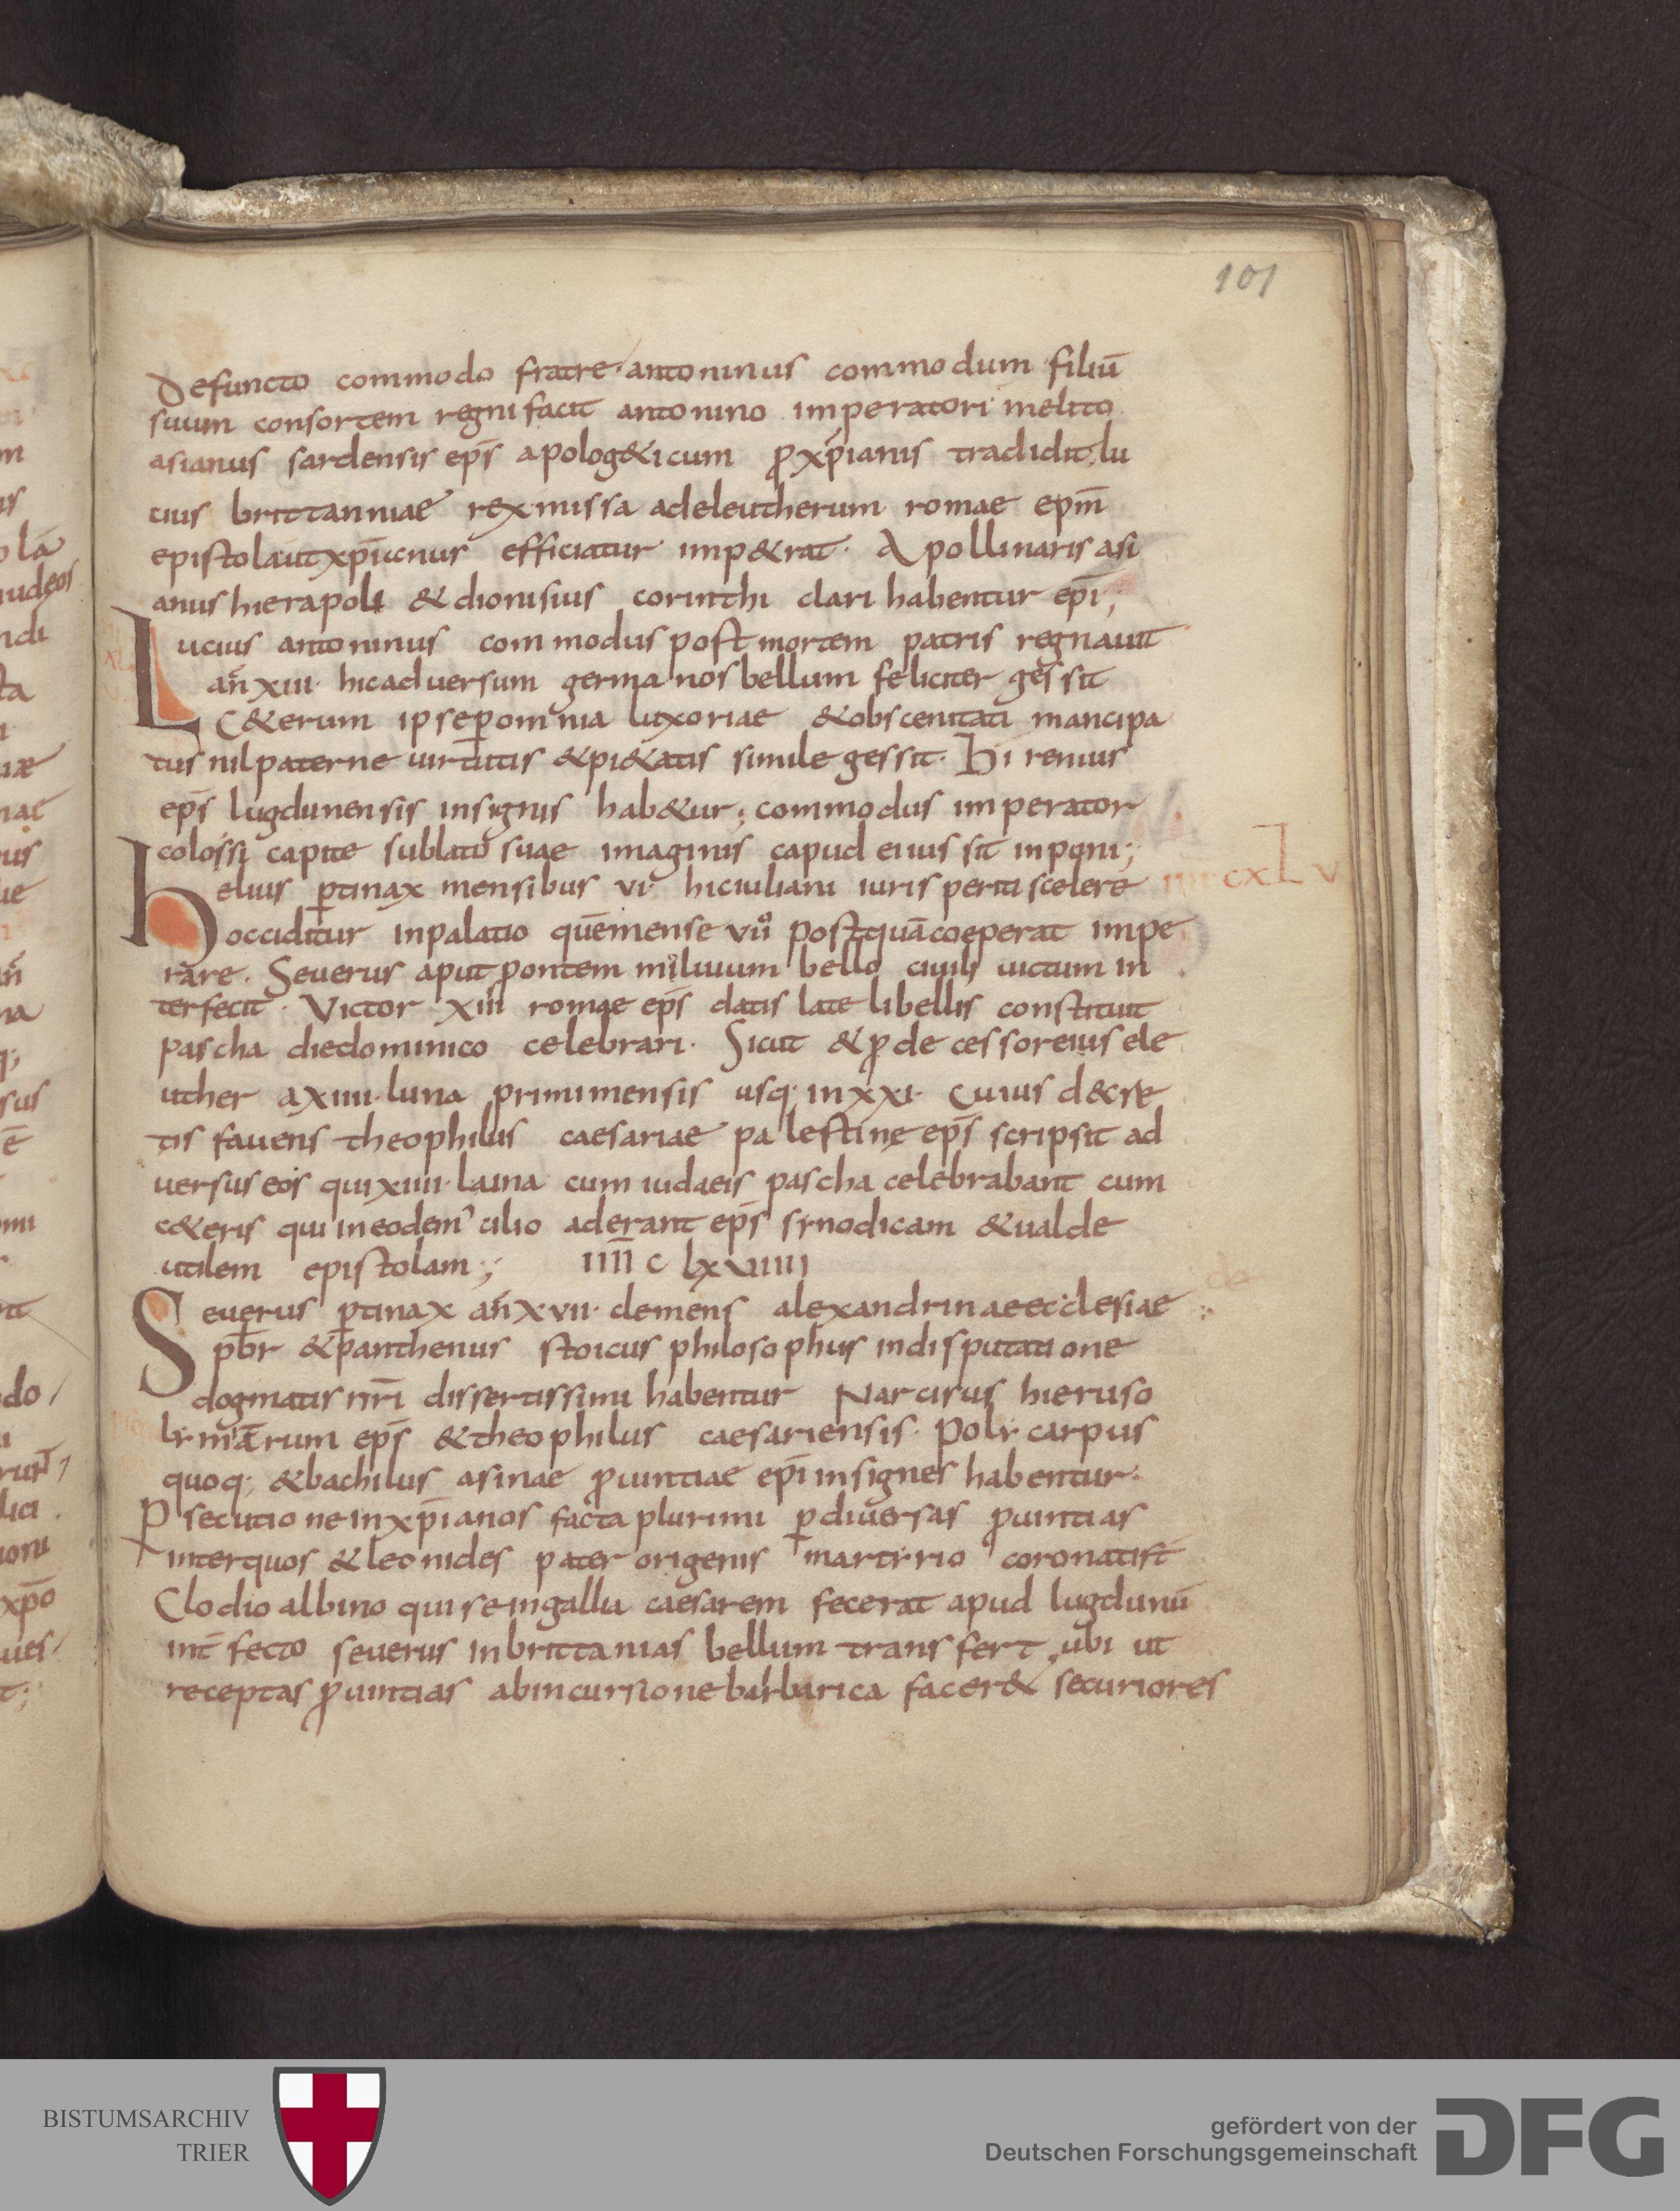 101
Defuncto commodo fratre antoninus commodum filiū
suum consortem regni facit antonino imperatori melito
asianus sardensis ep̄s apolog&icum ꝓ xp̄ianis tradidit lu
cius brittanniae rex missa adeleutherum romae ep̄m
epistola ut xp̄
efficiatur imp&rat. Apollinaris asi
anus hierapoli & dionisius corinthi clari habentur ep̄i;
Lucius antoninus commodus post mortem patris regnauit
an̄ xiii. hic aduersum germanos bellum feliciter gessit
C&erum ipse ꝑ omnia luxoriae & obscenitati mancipa
tus nil paterne uirtutis & pi&atis simile gessit. Hirenius
ep̄s lugdunensis insignis hab&ur; commodus imperator
colossi capite sublato suae imaginis capud ei iussit inponi;
Heluis ꝑtinax mensibus vi. hic iuliani iuris periti scelere
iiii cxlv
occiditur in palatio quē mense vii postquā coeperat impe
rare. Seuerus aput pontem miluium bello ciuili uictum in
terfecit. Victor xiii romae ep̄s datis late libellis constituit
pascha die dominico celebrari. Sicut & ꝓdecessor eius ele
uther a xiiii. luna primi mensis usq; in xxi. Cuius decre
tis fauens theophilus caesariae palestine ep̄s scripsit ad
uersus eos qui xiiii. luna cum iudaeis pascha celebrabant cum
c&eris qui in eodem cilio aderant ep̄s synodicam & ualde
utilem epistolam; iiii c lxviiii
Seuerus ꝑtinax an̄ xvii. clemens alexandrinae ecclesiae
pb̄r & panthenus stoicus philosophus in disputatione
dogmatis nr̄i dissertissimi habentur Narcisus hieruso
lymarum ep̄s & theophilus caesariensis. Polycarpus
quoq; & bachilus asinae ꝓuintiae ep̄i insignes habentur.
Ꝑsecutione in xp̄ianos facta plurimi ꝑ diuersas ꝓuintias
inter quos & leonides pater origenis martyrio coronatis̄t
Clodio albino qui se in gallia caesarem fecerat apud lugdunū
int̄fecto seuerus in brittanias bellum transfert, ubi ut
receptas ꝓuintias ab incursione barbarica facer& securiores
BISTUMSARCHIV
TRIER
gefördert von der
Deutschen Forschungsgemeinschaft
DFG